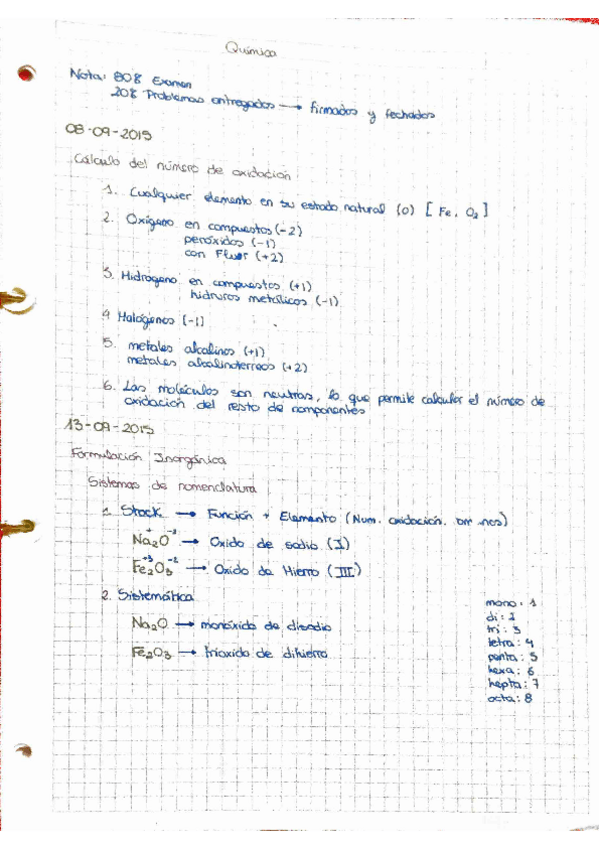 Química
Nota: 80% Examen
20% Problemas entregados → firmados y fechados
08-09-2015
Cálculo del número de oxidación
1. Cualquier elemento en su estado natural (0) [Fe, O₂]
2. Oxígeno en compuestos (-2)
peróxidos (-1)
con Fluor (+2)
3. Hidrógeno en compuestos (+1)
hidruros metálicos (-1)
4 Halógenos (-1)
5. metales alcalinos (+1)
metales alcalinoterreos (+2)
6. Las moléculas son neutras, lo que permite calcular el número de
oxidación del resto de componentes
13-09-2015
Formulación Inorgánica
Sistemas de nomenclatura
1. Stock → Función + Elemento (Num. oxidación. nos)
+ -2
Na₂O → Oxido de sodio (I)
+3 -2
Fe₂O₃ → Oxido de Hierro (III)
2. Sistemática
Na₂O → monóxido de disodio
Fe₂O₃ → trioxido de dihierro
mono: 1
di: 2
tri: 3
tetra: 4
penta: 5
hexa: 6
hepta: 7
octa: 8